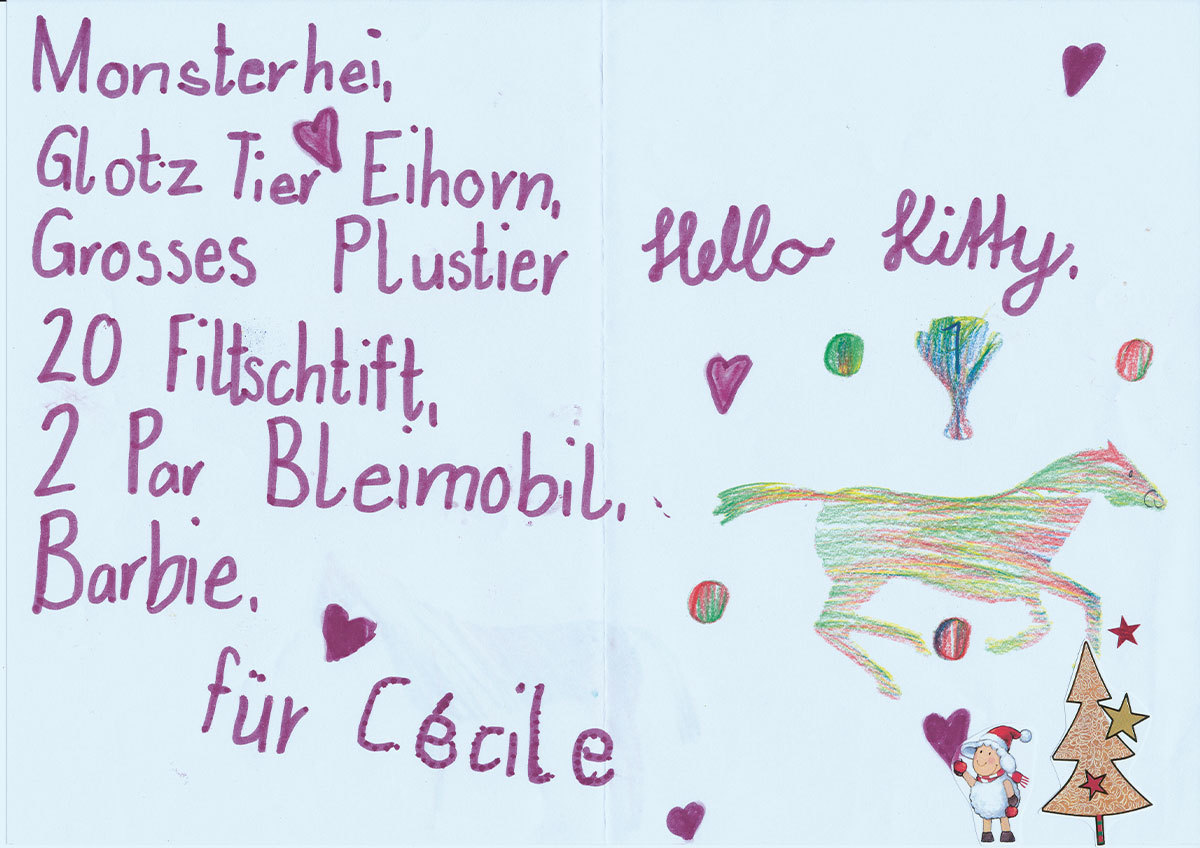 Monsterhei,
Glotz Tier Eihorn,
Grosses Plustier
20 Filtschtift,
2 Par Bleimobil,
Barbie.
für Cécile
Hello Kitty.
1